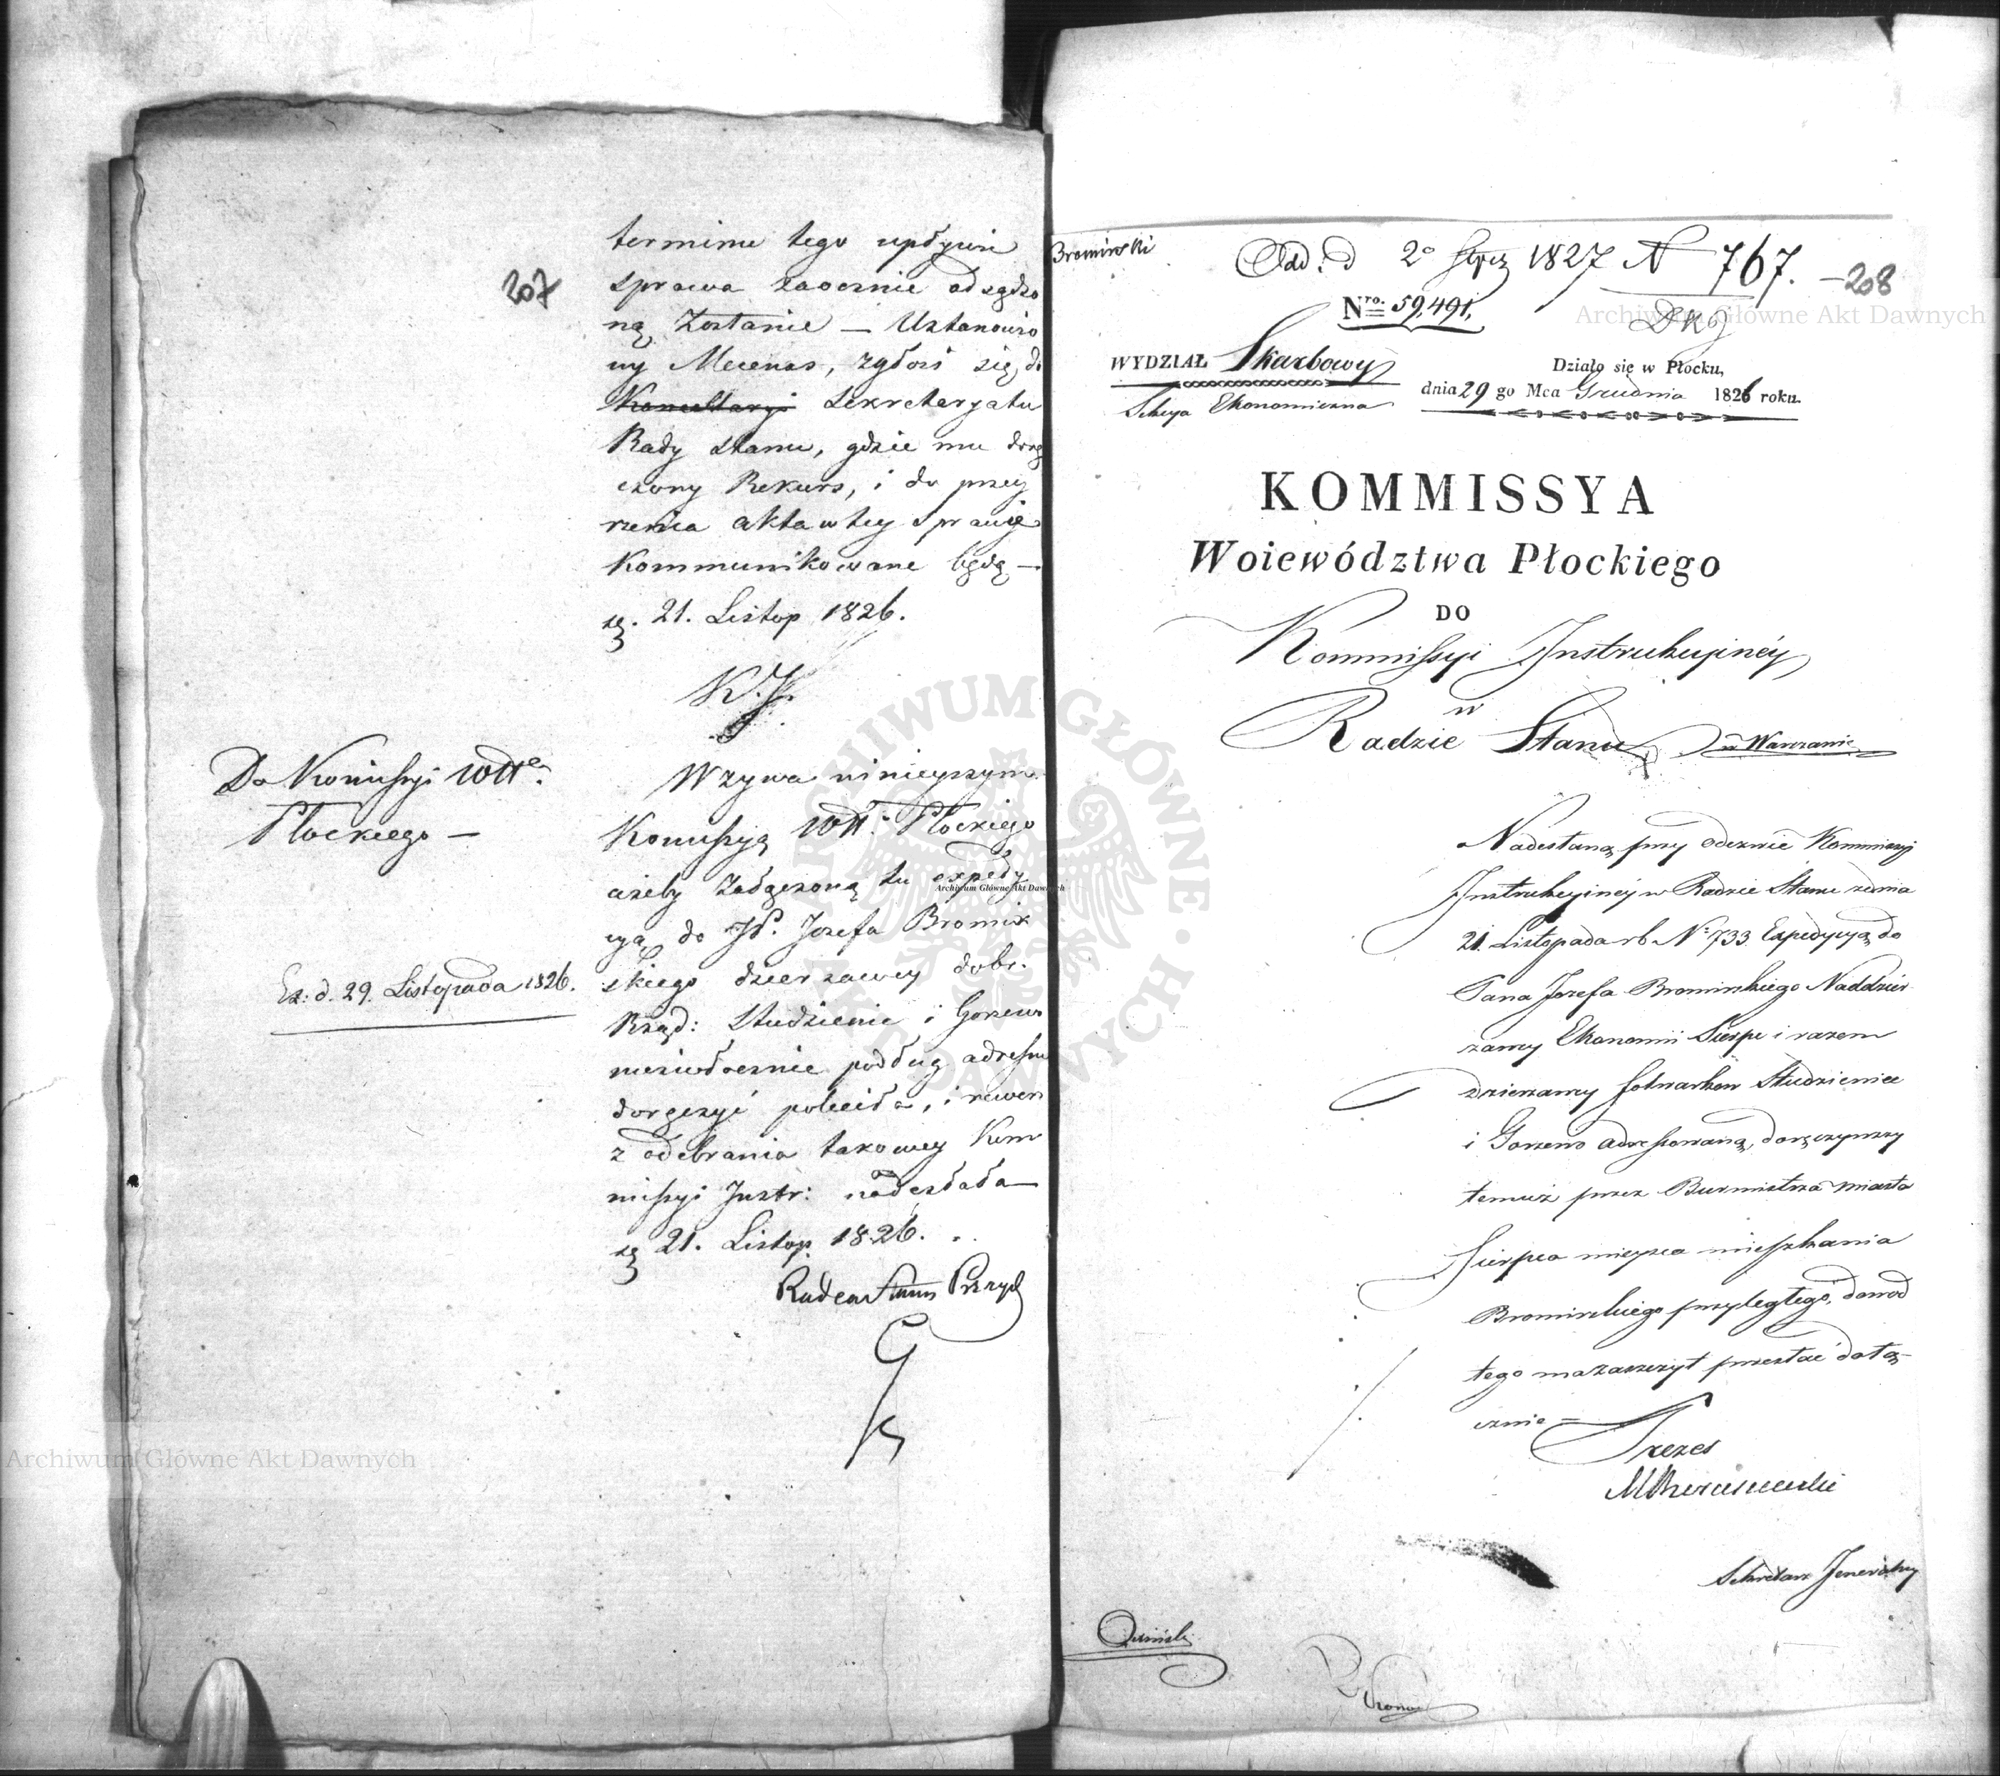 207
terminu tego upłynie
sprawa zaocznie odsądzo
ną zostanie — Ustanowio
ny Mecenas, zgłosi się do
Konsultacyi Sekretaryatu
Rady Stanu, gdzie mu dorę
czony Rekurs, i do przey
rzenia akta w tey sprawie
kommunikowane będą —
21. Listop 1826.
K.J.
Do Komissyi Wttē.
Płockiego —
Ex: d. 29. Listopada 1826.
Wzywa ninieyszym
Komissyą Wtt: Płockiego
ażeby załączoną tu expedy
cyą do JP. Jozefa Bromir
skiego dzierzawcy dobr.
Rząd: Studzieniec i Gorzewo
niezwłocznie podług adressu
doręczyć poleciła, i rewers
z odebrania takowey Kom
missyi Instr: nadesłała —
21. Listop. 1826.
Radca Stanu Prezyd
Bromirski
Odd. d 2º Stycz 1827 N 767. — 208
Nro. 59,491.
WYDZIAŁ Skarbowy
Sekcya Ekonomiczna
Działo się w Płocku,
dnia 29 go Mca Grudnia 1826 roku.
KOMMISSYA
Woiewództwa Płockiego
DO
Kommissyi Instrukcyinéy
w
Radzie Stanu w Warszawie
Nadesłaną przy odezwie Kommissyi
Instrukcyinéy w Radzie Stanu z dnia
21. Listopada rb Nº 733. Expedycyą do
Pana Jozefa Bromirskiego Naddzier
zawcy Ekonomii Sierpc i razem
dzierzawcy folwarkow Studzieniec
i Gorzewo adressowaną, doręczywszy
temuż przez Burmistrza miasta
Sierpca mieysca mieszkania
Bromirskiego przyległego, dowod
tego ma zaszczyt przesłać dołą-
cznie —
Prezes
Sekretarz Jeneralny
Archiwum Główne Akt Dawnych
Archiwum Główne Akt Dawnych
Archiwum Główne Akt Dawnych
ARCHIWUM GŁÓWNE AKT DAWNYCH